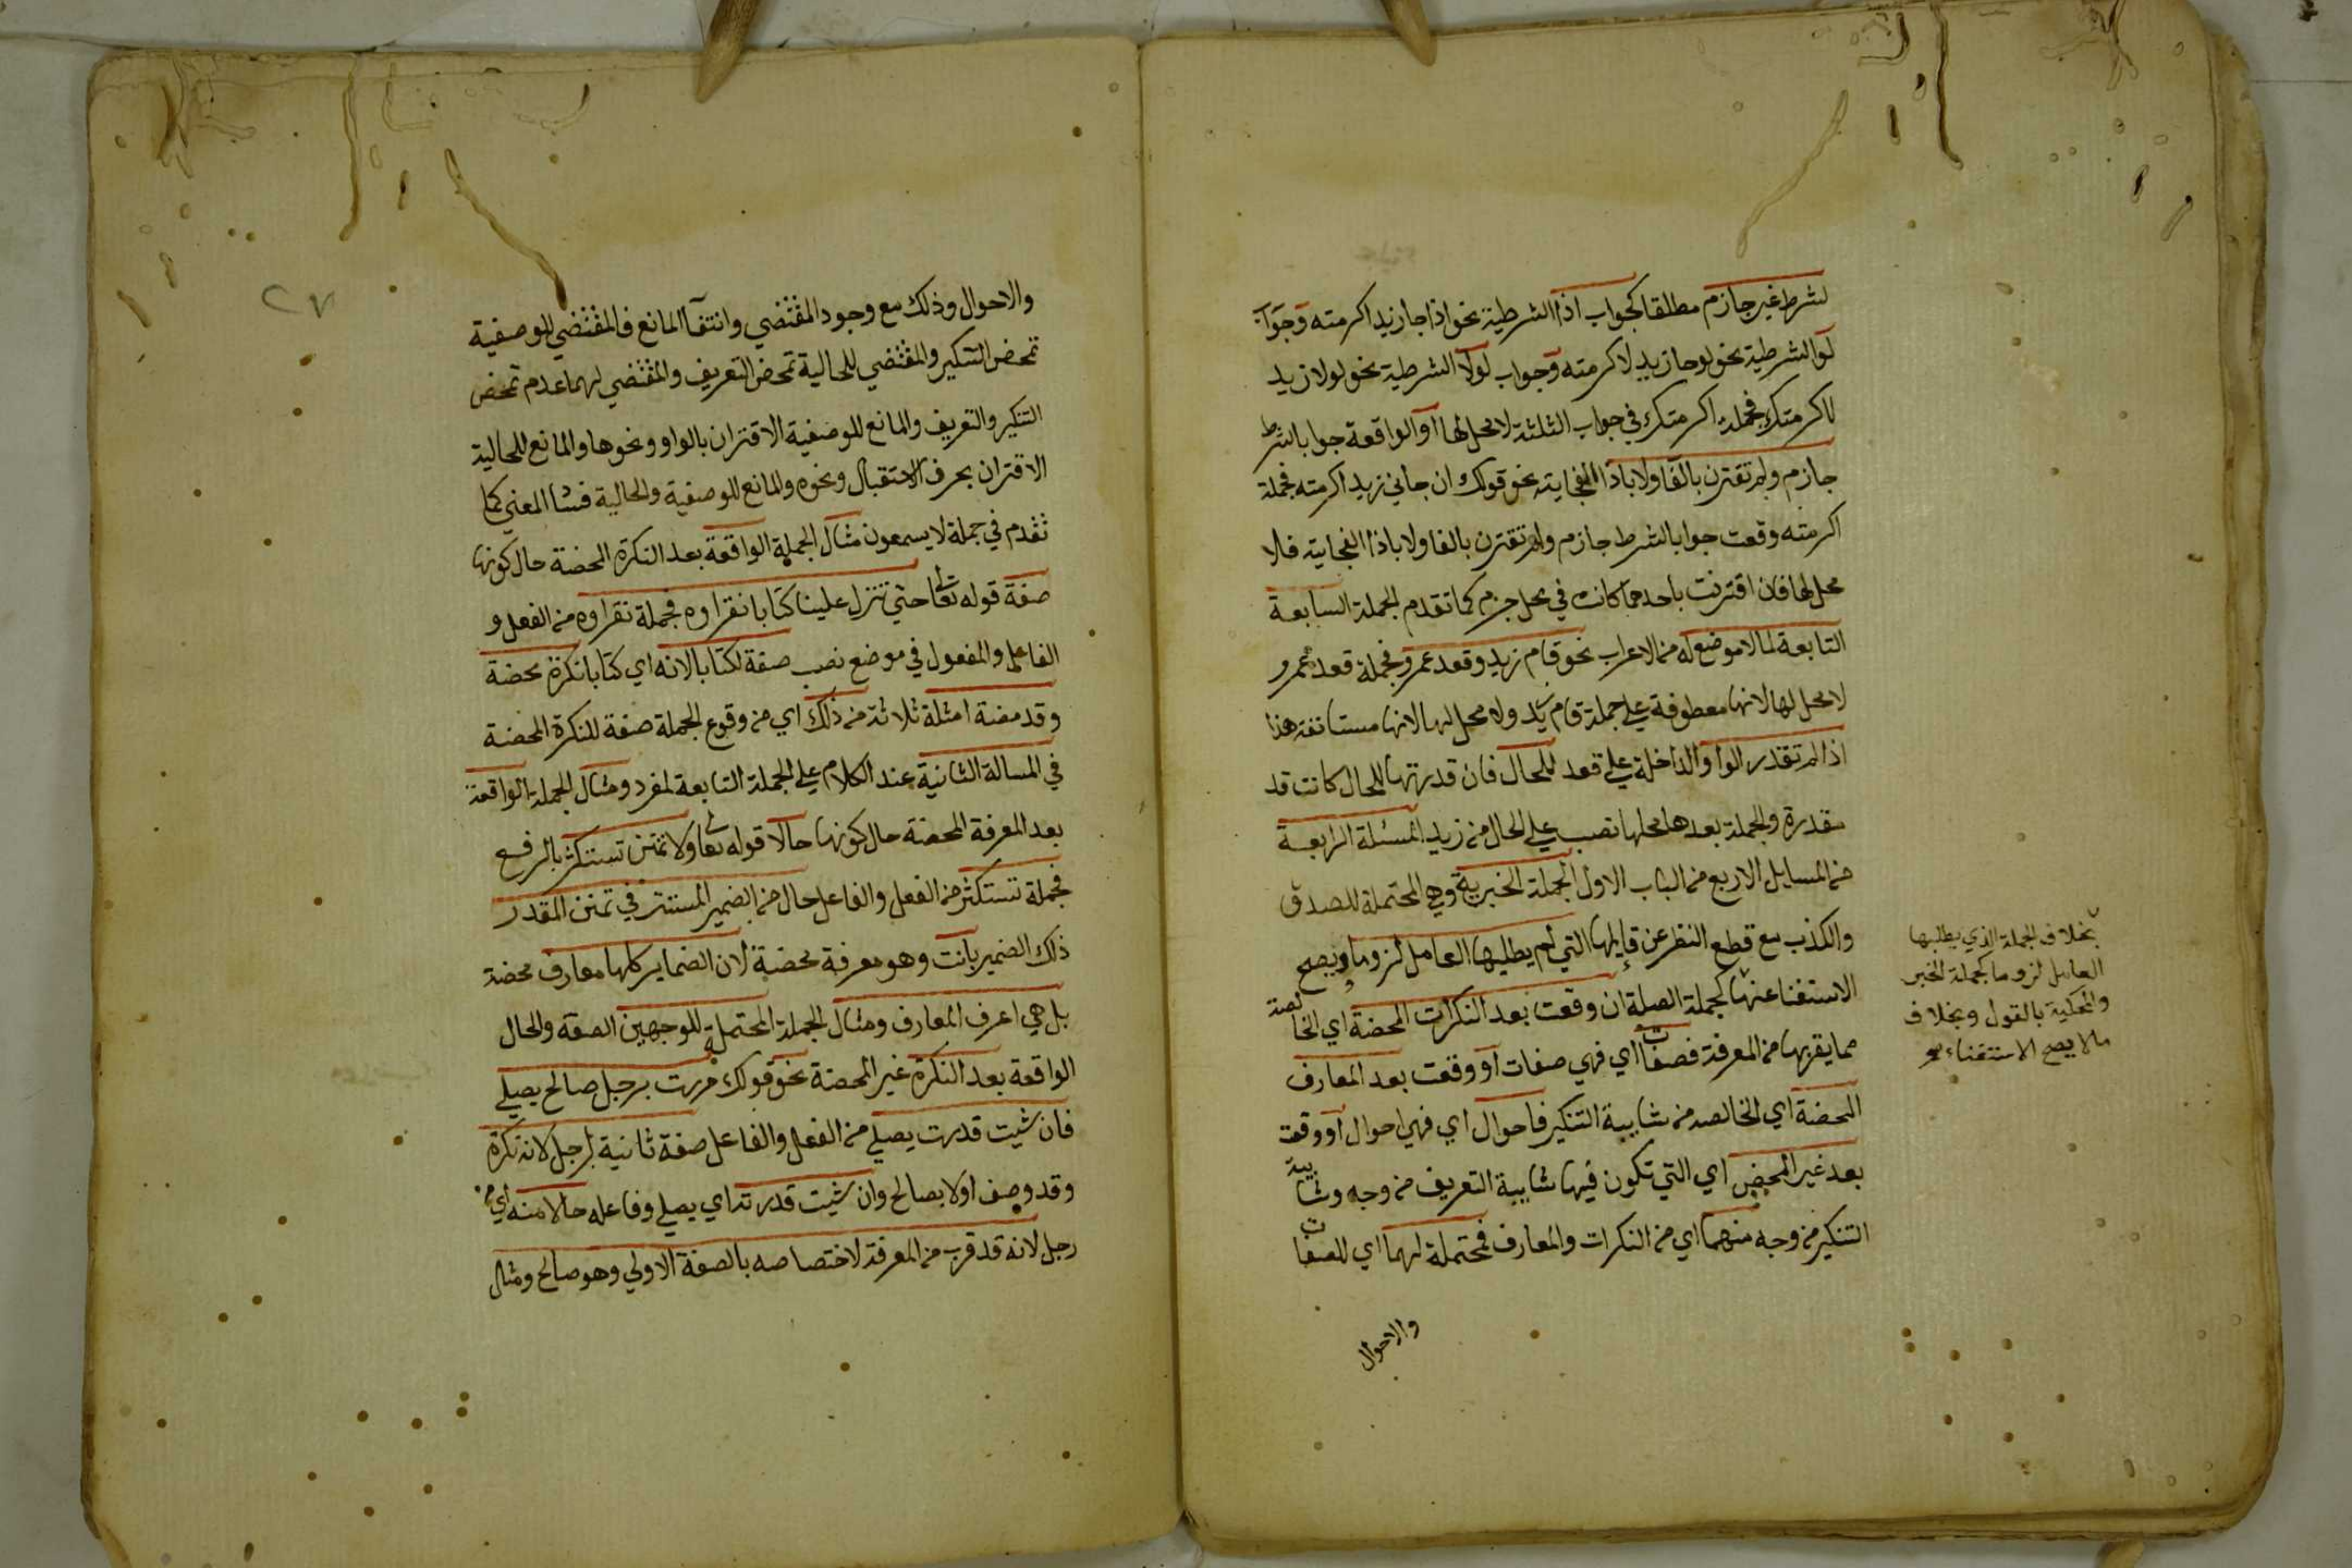 لشرط غير جازم مطلقا كجواب اذا الشرطية نحو اذا جا زيد اكرمته وجواب
لو الشرطية نحو لو جا زيد لاكرمته وجواب لولا الشرطية نحو لولا زيد
لاكرمتك فجملة اكرمتك في جواب الثلثة لا محل لها او الواقعة جوابا لشرط
جازم ولم تقترن بالفا ولا باذا الفجاية نحو قولك ان جاني زيد اكرمته فجملة
اكرمته وقعت جوابا لشرط جازم ولم تقترن بالفا ولا باذا الفجاية فلا
محل لها فان اقترنت باحدهما كانت في محل جزم كما تقدم الجملة السابعة
التابعة لما لا موضع له من الاعراب نحو قام زيد وقعد عمرو فجملة قعد عمرو
لا محل لها لانها معطوفة علي جملة قام زيد ولا محل لها لانها مستانفة هذا
اذا لم تقدر الواو الداخلة علي قعد للحال فان قدرتها للحال كانت قد
مقدرة والجملة بعدها محلها نصب علي الحال من زيد المسئلة الرابعة
من المسايل الاربع من الباب الاول الجملة الخبرية وهي المحتملة للصدق
والكذب مع قطع النظر عن قايلها التي لم يطلبها العامل لزوما ويصح
الاستغنا عنها كجملة الصلة ان وقعت بعد النكرات المحضة اي الخالصة
مما يقربها من المعرفة فصفات اي فهي صفات او وقعت بعد المعارف
المحضة اي الخالصه من شايبة التنكير فاحوال اي فهي احوال او وقعت
بعد غير المحض اي التي تكون فيها شايبة التعريف من وجه وشايبة
التنكير من وجه منهما اي من النكرات والمعارف فمحتملة لهما اي للصفات
والاحوال
بخلاف الجملة الذي يطلبها
العامل لزوما كجملة الخبر
والمحكية بالقول وبخلاف
مالا يصح الاستغناء
٢٧
والاحوال وذلك مع وجود المقتضي وانتفآ المانع فالمقتضي للوصفية
تمحض التنكير والمقتضي للحالية تمحض التعريف والمقتضي لهما عدم تمحض
التنكير والتعريف والمانع للوصفية الاقتران بالواو ونحوها والمانع للحالية
الاقتران بحرف الاستقبال ونحوه والمانع للوصفية والحالية فسا المعني كما
تقدم في جملة لا يسمعون مثال الجملة الواقعة بعد النكرة المحضة حال كونها
صفة قوله تعالى حتي تنزل علينا كتابا نقراوه فجملة نقراوه من الفعل و
الفاعل والمفعول في موضع نصب صفة لكتابا لانه اي كتابا نكرة محضة
وقد مضت امثلة ثلاثة من ذلك اي من وقوع الجملة صفة للنكرة المحضة
في المسالة الثانية عند الكلام علي الجملة التابعة لمفرد ومثال الجملة الواقعة
بعد المعرفة المحضة حال كونها حالا قوله تعالى ولا تمنن تستكثر بالرفع
فجملة تستكثر من الفعل والفاعل حال من الضمير المستتر في تمنن المقدر
ذلك الضمير بانت وهو معرفة محضة لان الضماير كلها معارف محضة
بل هي اعرف المعارف ومثال الجملة المحتملة للوجهين الصفة والحال
الواقعة بعد النكرة غير المحضة نحو قولك مررت برجل صالح يصلي
فان شيت قدرت يصلي من الفعل والفاعل صفة ثانية لرجل لانه نكرة
وقد وصف اولا بصالح وان شيت قدرته اي يصلي وفاعله حالا منه اي من
رجل لانه قد قرب من المعرفة لاختصاصه بالصفة الاولي وهو صالح ومثال